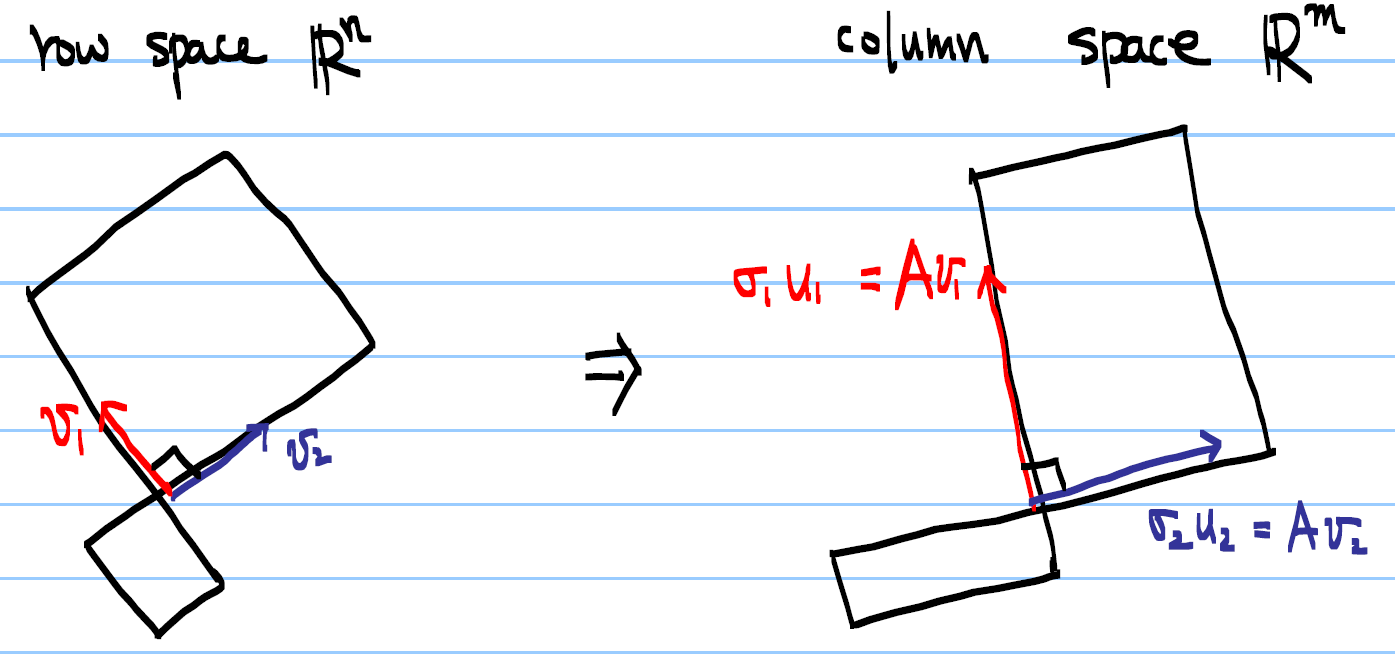 row space ℝⁿ
column space ℝᵐ
σ₁u₁ = Av₁
v₁
v₂
⇒
σ₂u₂ = Av₂